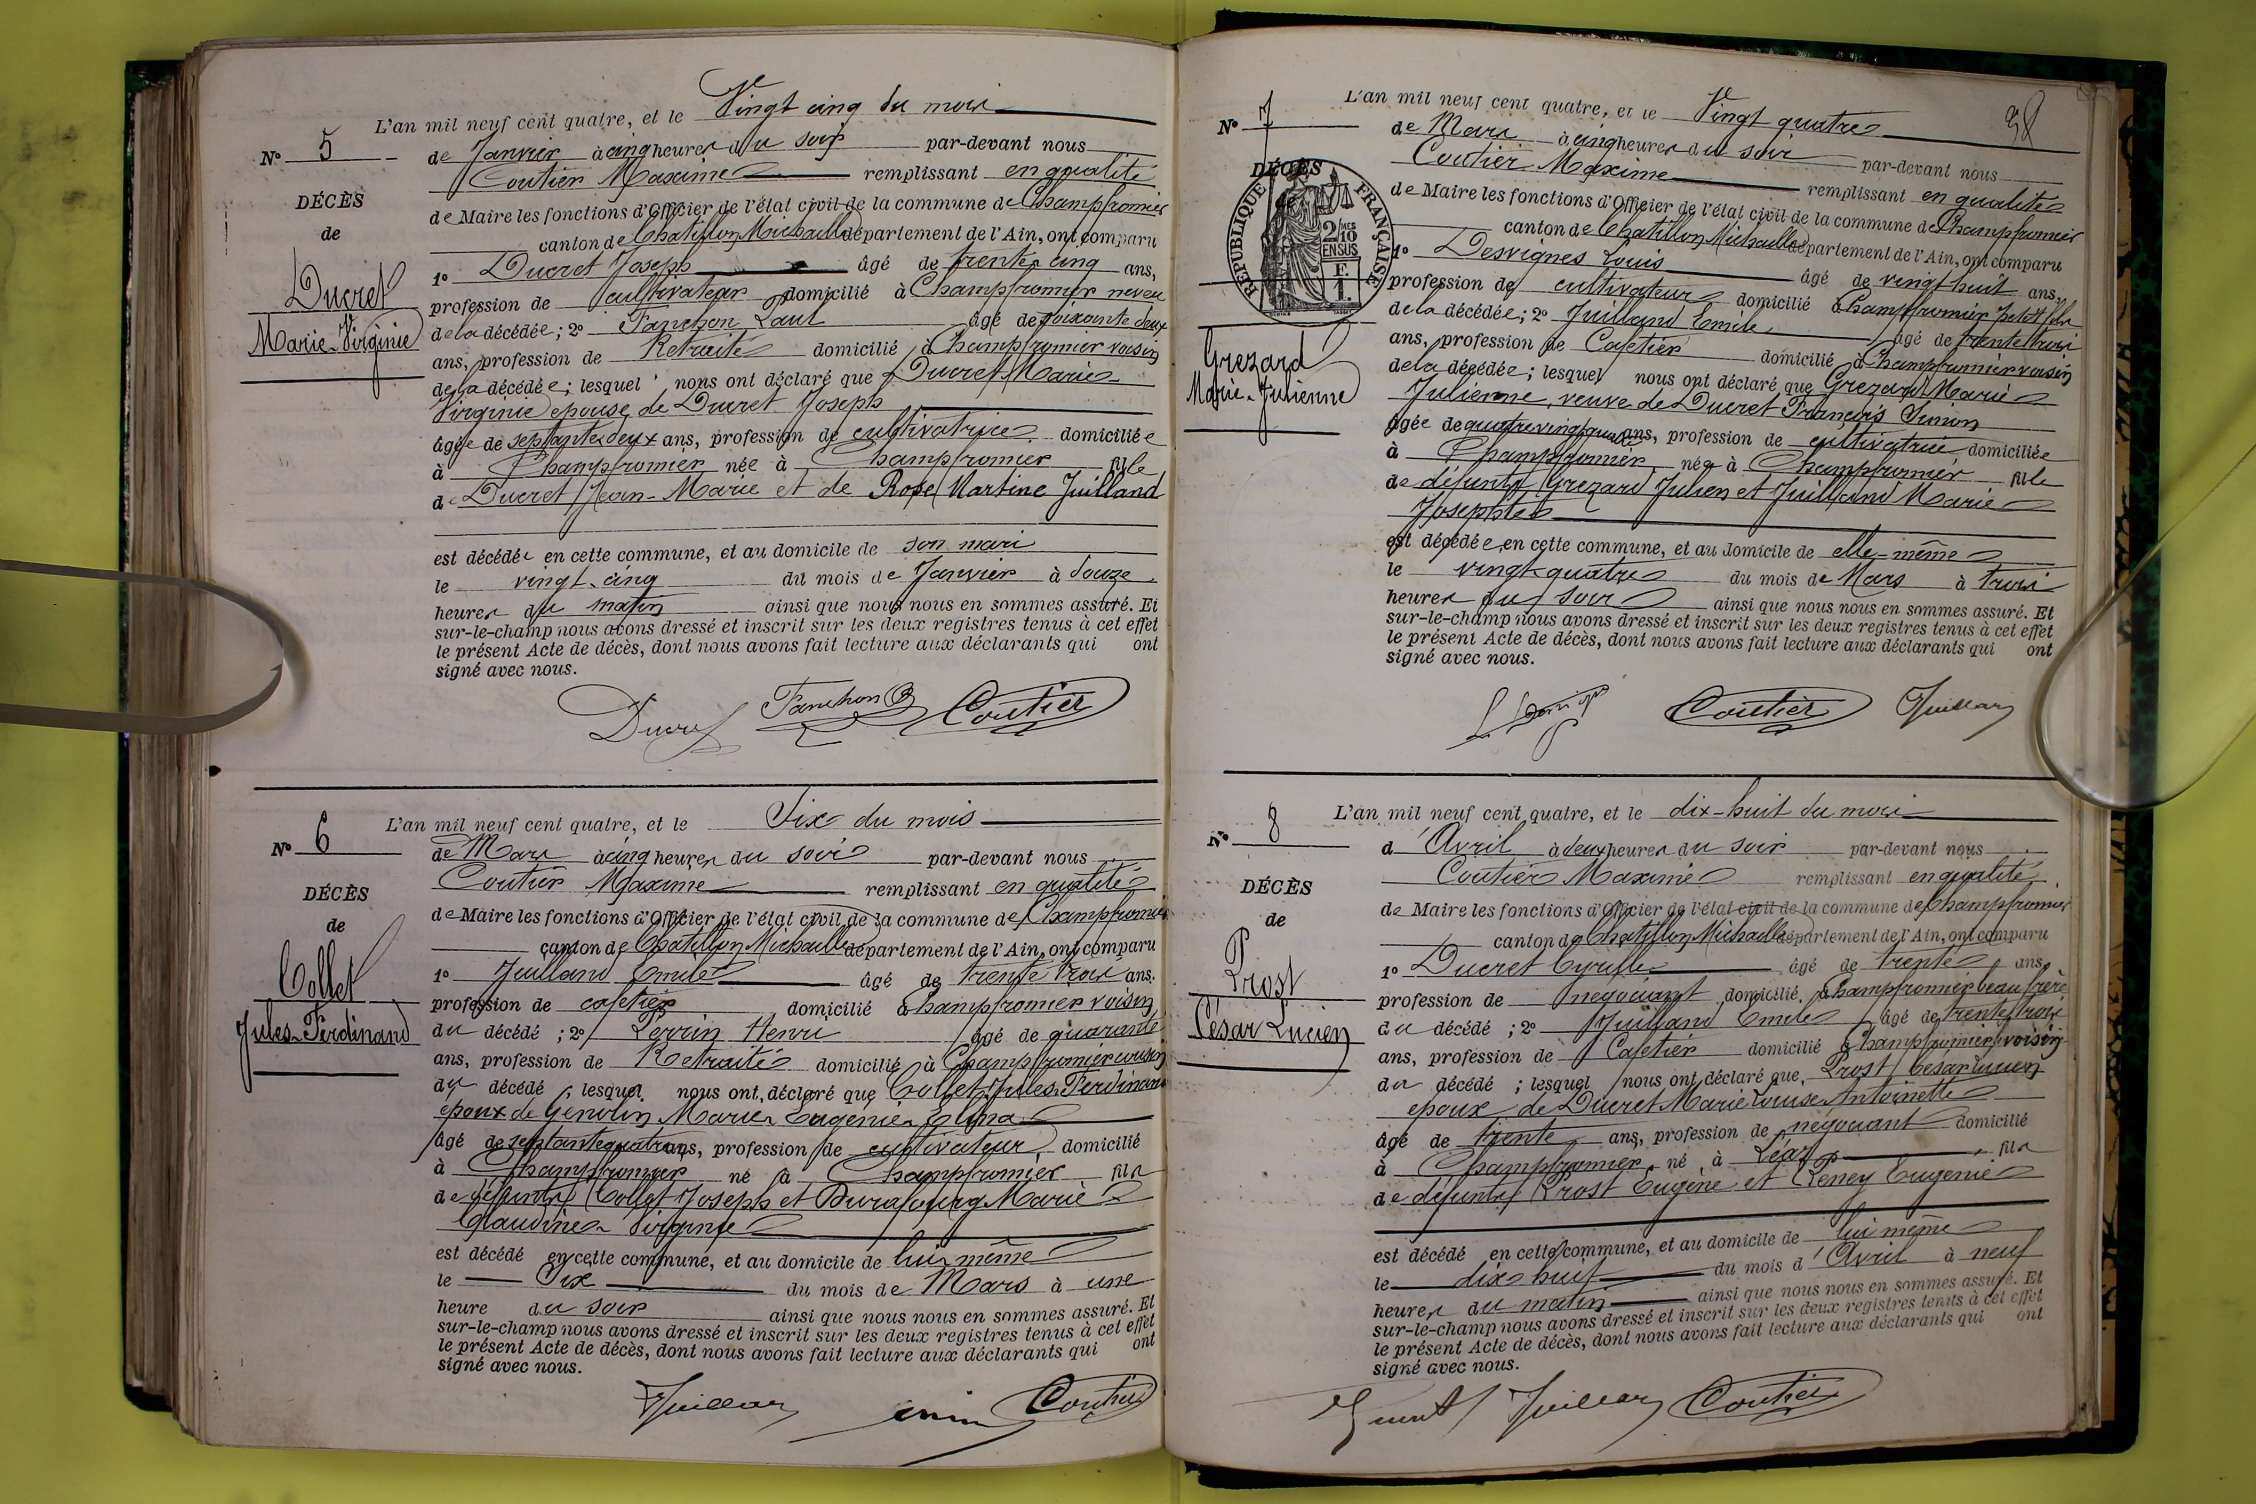 L'an mil neuf cent quatre, et le Vingt cinq du mois
N° 5
de Janvier à cinq heures du soir par-devant nous
Coutier Maxime remplissant en qualité
DÉCÈS
de Maire les fonctions d'Officier de l'état civil de la commune de Champfromier
de
canton de Chatillon Michaille département de l'Ain, ont comparu
Ducret
Marie-Virginie
1° Ducret Joseph âgé de trente cinq ans,
profession de cultivateur domicilié à Champfromier neveu
de la décédée; 2° Fanchon Paul âgé de soixante deux
ans, profession de Retraité domicilié à Champfromier voisin
de la décédée; lesquels nous ont déclaré que Ducret Marie
Virginie épouse de Ducret Joseph
âgée de septante deux ans, profession de cultivatrice domiciliée
à Champfromier née à Champfromier fille
de Ducret Jean-Marie et de Rose Martine Juilland
est décédée en cette commune, et au domicile de son mari
le vingt-cinq du mois de Janvier à douze
heures du matin ainsi que nous nous en sommes assuré. Et
sur-le-champ nous avons dressé et inscrit sur les deux registres tenus à cet effet
le présent Acte de décès, dont nous avons fait lecture aux déclarants qui ont
signé avec nous.
Ducret Fanchon Coutier
L'an mil neuf cent quatre, et le Six du mois
N° 6
de Mars à cinq heures du soir par-devant nous
Coutier Maxime remplissant en qualité
DÉCÈS
de Maire les fonctions d'Officier de l'état civil de la commune de Champfromier
de
canton de Chatillon Michaille département de l'Ain, ont comparu
Collet
Jules-Ferdinand
1° Juilland Emile âgé de trente trois ans.
profession de cafetier domicilié à Champfromier voisin
du décédé; 2° Perrin Henri âgé de quarante
ans, profession de Retraité domicilié à Champfromier voisin
du décédé; lesquels nous ont déclaré que Collet Jules-Ferdinand
époux de Marie-Eugénie
âgé de septante quatre ans, profession de cultivateur domicilié
à Champfromier né à Champfromier fils
de défunts Collet Joseph et Durafourg Marie
Claudine-Virginie
est décédé en cette commune, et au domicile de lui même
le Six du mois de Mars à une
heure du soir ainsi que nous nous en sommes assuré. Et
sur-le-champ nous avons dressé et inscrit sur les deux registres tenus à cet effet
le présent Acte de décès, dont nous avons fait lecture aux déclarants qui ont
signé avec nous.
Juilland Coutier
38
L'an mil neuf cent quatre, et le Vingt quatre
N° 7
de Mars à cinq heures du soir par-devant nous
Coutier Maxime remplissant en qualité
DÉCÈS
RÉPUBLIQUE FRANÇAISE
2/10 MES EN SUS
F. 1.
de Maire les fonctions d'Officier de l'état civil de la commune de Champfromier
canton de Chatillon Michaille département de l'Ain, ont comparu
1° Desvignes Louis âgé de vingt huit ans,
profession de cultivateur domicilié à Champfromier petit fils
de la décédée; 2° Juilland Emile âgé de trente trois
Grezard
Marie-Julienne
ans, profession de Cafetier domicilié à Champfromier voisin
de la décédée; lesquels nous ont déclaré que Grezard Marie
Julienne, veuve de Ducret François Simon
âgée de quatre vingt quatre ans, profession de cultivatrice domiciliée
à Champfromier née à Champfromier fille
de défunts Grezard Julien et Juilland Marie
Josephte
est décédée en cette commune, et au domicile de elle-même
le vingt-quatre du mois de Mars à trois
heures du soir ainsi que nous nous en sommes assuré. Et
sur-le-champ nous avons dressé et inscrit sur les deux registres tenus à cet effet
le présent Acte de décès, dont nous avons fait lecture aux déclarants qui ont
signé avec nous.
Coutier Juilland
L'an mil neuf cent quatre, et le dix-huit du mois
N° 8
d'Avril à deux heures du soir par-devant nous
Coutier Maxime remplissant en qualité
DÉCÈS
de Maire les fonctions d'Officier de l'état civil de la commune de Champfromier
de
canton de Chatillon Michaille département de l'Ain, ont comparu
Prost
César Lucien
1° Ducret Cyrille âgé de trente ans
profession de négociant domicilié à Champfromier beau frère
du décédé; 2° Juilland Emile âgé de trente trois
ans, profession de Cafetier domicilié à Champfromier voisin
du décédé; lesquels nous ont déclaré que Prost César Lucien
époux de Ducret Marie Louise Antoinette
âgé de trente ans, profession de négociant domicilié
à Champfromier né à Léaz fils
de défunts Prost Eugène et Peney Eugénie
est décédé en cette commune, et au domicile de lui même
le dix huit du mois d'Avril à neuf
heures du matin ainsi que nous nous en sommes assuré. Et
sur-le-champ nous avons dressé et inscrit sur les deux registres tenus à cet effet
le présent Acte de décès, dont nous avons fait lecture aux déclarants qui ont
signé avec nous.
Ducret Juilland Coutier